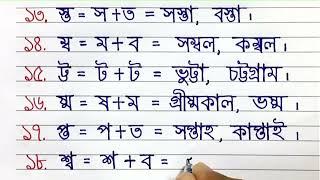 ১৩. স্ত = স+ত = সস্তা, বস্তা ।
১৪. ম্ব = ম+ব = সম্বল, কম্বল ।
১৫. ট্ট = ট+ট = ভুট্টা, চট্টগ্রাম ।
১৬. ষ্ম = ষ+ম = গ্রীষ্মকাল, ভষ্ম ।
১৭. প্ত = প+ত = সপ্তাহ, কাপ্তাই ।
১৮. শ্ব = শ+ব =